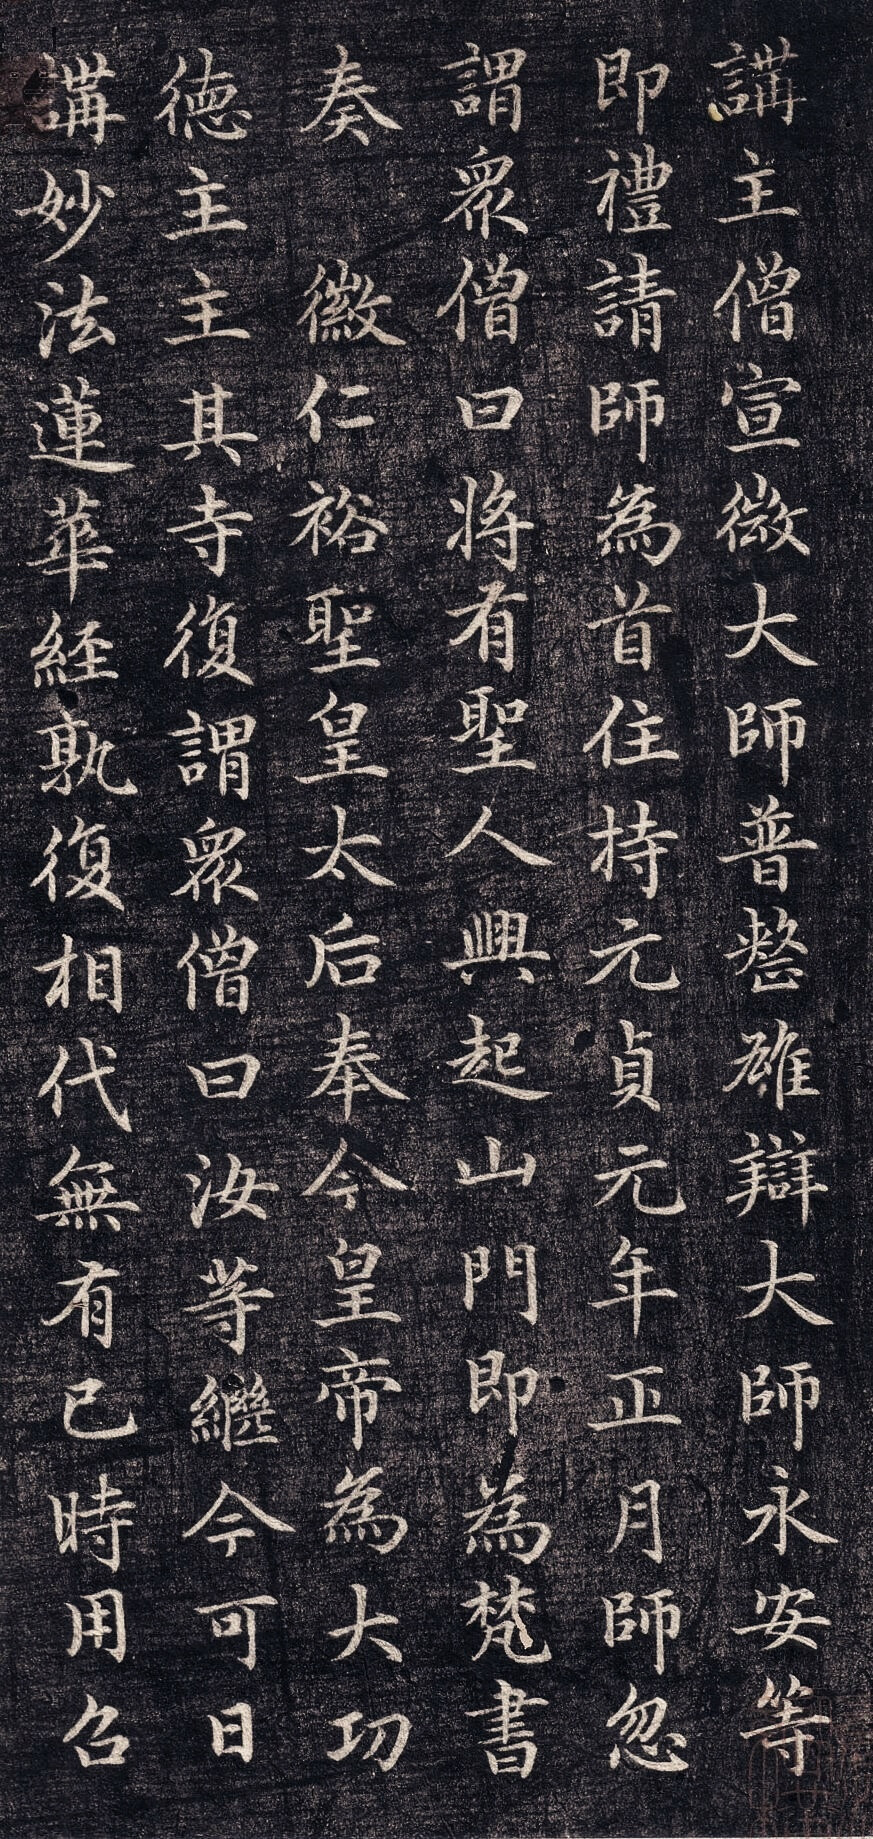 講主僧宣微大師普整雄辯大師永安等
即禮請師為首住持元貞元年正月師忽
謂眾僧曰將有聖人興起山門即為梵書
奏 徽仁裕聖皇太后奉今皇帝為大功
德主主其寺復謂眾僧曰汝等繼今可日
講妙法蓮華経孰復相代無有已時用召